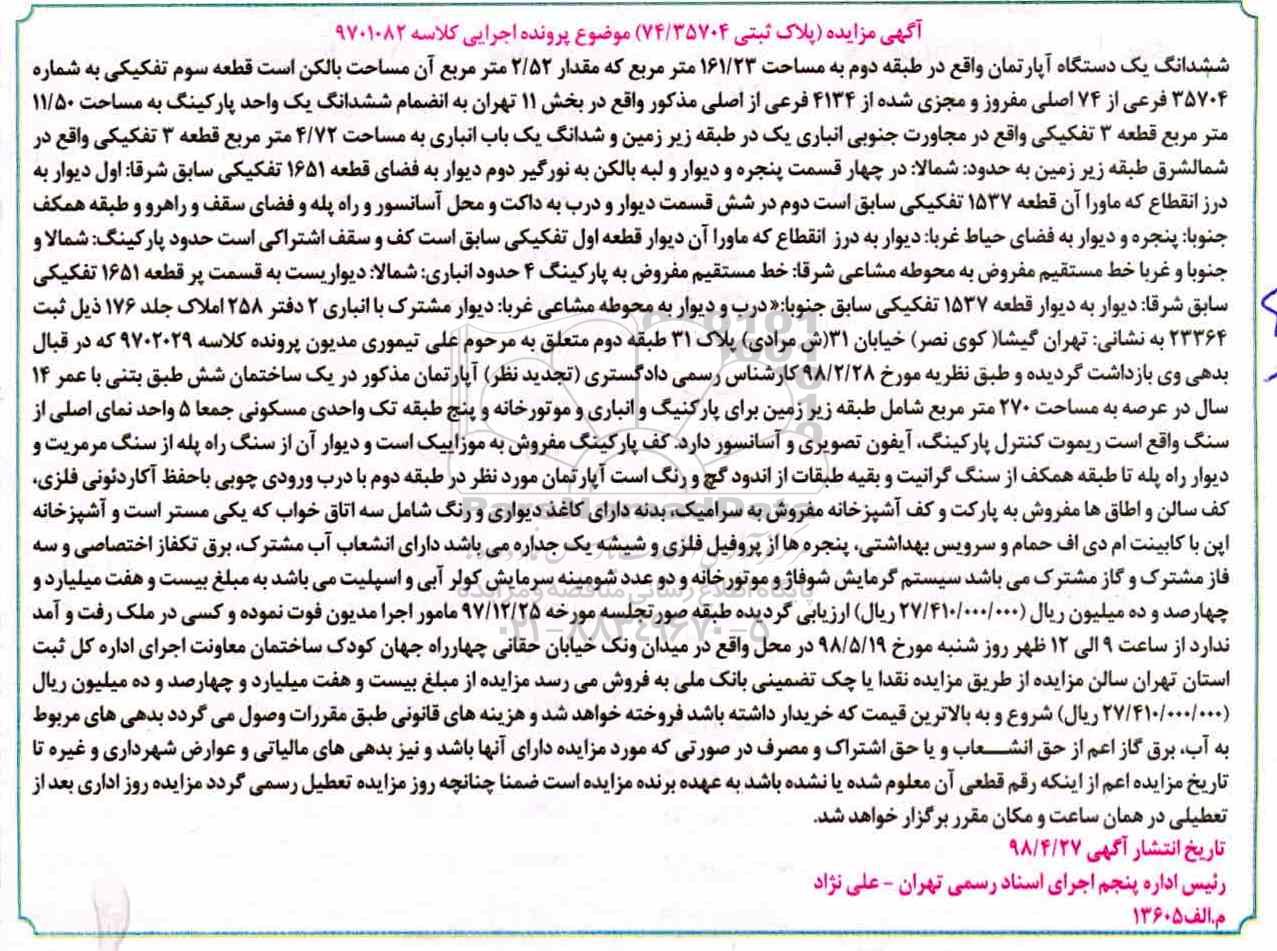 آگهی مزایده (پلاک ثبتی ۷۴/۳۵۷۰۴) موضوع پرونده اجرایی کلاسه ۹۷۰۱۰۸۲
ششدانگ یک دستگاه آپارتمان واقع در طبقه دوم به مساحت ۱۶۱/۲۳ متر مربع که مقدار ۲/۵۲ متر مربع آن مساحت بالکن است قطعه سوم تفکیکی به شماره
۳۵۷۰۴ فرعی از ۷۴ اصلی مفروز و مجزی شده از ۴۱۳۴ فرعی از اصلی مذکور واقع در بخش ۱۱ تهران به انضمام ششدانگ یک واحد پارکینگ به مساحت ۱۱/۵۰
متر مربع قطعه ۳ تفکیکی واقع در مجاورت جنوبی انباری یک در طبقه زیر زمین و شدانگ یک باب انباری به مساحت ۴/۷۲ متر مربع قطعه ۳ تفکیکی واقع در
شمالشرق طبقه زیر زمین به حدود: شمالا: در چهار قسمت پنجره و دیوار و لبه بالکن به نورگیر دوم دیوار به فضای قطعه ۱۶۵۱ تفکیکی سابق شرقا: اول دیوار به
درز انقطاع که ماورا آن قطعه ۱۵۳۷ تفکیکی سابق است دوم در شش قسمت دیوار و درب به داکت و محل آسانسور و راه پله و فضای سقف و راهرو و طبقه همکف
جنوبا: پنجره و دیوار به فضای حیاط غربا: دیوار به درز انقطاع که ماورا آن دیوار قطعه اول تفکیکی سابق است کف و سقف اشتراکی است حدود پارکینگ: شمالا و
جنوبا و غربا خط مستقیم مفروض به محوطه مشاعی شرقا: خط مستقیم مفروض به پارکینگ ۴ حدود انباری: شمالا: دیواریست به قسمت پر قطعه ۱۶۵۱ تفکیکی
سابق شرقا: دیوار به دیوار قطعه ۱۵۳۷ تفکیکی سابق جنوبا:«درب و دیوار به محوطه مشاعی غربا: دیوار مشترک با انباری ۲ دفتر ۲۵۸ املاک جلد ۱۷۶ ذیل ثبت
۲۳۳۶۴ به نشانی: تهران گیشا( کوی نصر) خیابان ۳۱(ش مرادی) پلاک ۳۱ طبقه دوم متعلق به مرحوم علی تیموری مدیون پرونده کلاسه ۹۷۰۲۰۲۹ که در قبال
بدهی وی بازداشت گردیده و طبق نظریه مورخ ۹۸/۲/۲۸ کارشناس رسمی دادگستری (تجدید نظر) آپارتمان مذکور در یک ساختمان شش طبق بتنی با عمر ۱۴
سال در عرصه به مساحت ۲۷۰ متر مربع شامل طبقه زیر زمین برای پارکنیگ و انباری و موتورخانه و پنج طبقه تک واحدی مسکونی جمعا ۵ واحد نمای اصلی از
سنگ واقع است ریموت کنترل پارکینگ، آیفون تصویری و آسانسور دارد. کف پارکینگ مفروش به موزاییک است و دیوار آن از سنگ راه پله از سنگ مرمریت و
دیوار راه پله تا طبقه همکف از سنگ گرانیت و بقیه طبقات از اندود گچ و رنگ است آپارتمان مورد نظر در طبقه دوم با درب ورودی چوبی باحفظ آکاردئونی فلزی،
کف سالن و اطاق ها مفروش به پارکت و کف آشپزخانه مفروش به سرامیک، بدنه دارای کاغذ دیواری و رنگ شامل سه اتاق خواب که یکی مستر است و آشپزخانه
اپن با کابینت ام دی اف حمام و سرویس بهداشتی، پنجره ها از پروفیل فلزی و شیشه یک جداره می باشد دارای انشعاب آب مشترک، برق تکفاز اختصاصی و سه
فاز مشترک و گاز مشترک می باشد سیستم گرمایش شوفاژ و موتورخانه و دو عدد شومینه سرمایش کولر آبی و اسپلیت می باشد به مبلغ بیست و هفت میلیارد و
چهارصد و ده میلیون ریال (۲۷/۴۱۰/۰۰۰/۰۰۰ ریال) ارزیابی گردیده طبقه صورتجلسه مورخه ۹۷/۱۲/۲۵ مامور اجرا مدیون فوت نموده و کسی در ملک رفت و آمد
ندارد از ساعت ۹ الی ۱۲ ظهر روز شنبه مورخ ۹۸/۵/۱۹ در محل واقع در میدان ونک خیابان حقانی چهارراه جهان کودک ساختمان معاونت اجرای اداره کل ثبت
استان تهران سالن مزایده از طریق مزایده نقدا یا چک تضمینی بانک ملی به فروش می رسد مزایده از مبلغ بیست و هفت میلیارد و چهارصد و ده میلیون ریال
(۲۷/۴۱۰/۰۰۰/۰۰۰ ریال) شروع و به بالاترین قیمت که خریدار داشته باشد فروخته خواهد شد و هزینه های قانونی طبق مقررات وصول می گردد بدهی های مربوط
به آب، برق گاز اعم از حق انشـــعاب و یا حق اشتراک و مصرف در صورتی که مورد مزایده دارای آنها باشد و نیز بدهی های مالیاتی و عوارض شهرداری و غیره تا
تاریخ مزایده اعم از اینکه رقم قطعی آن معلوم شده یا نشده باشد به عهده برنده مزایده است ضمنا چنانچه روز مزایده تعطیل رسمی گردد مزایده روز اداری بعد از
تعطیلی در همان ساعت و مکان مقرر برگزار خواهد شد.
تاریخ انتشار آگهی ۹۸/۴/۲۷
رئیس اداره پنجم اجرای اسناد رسمی تهران - علی نژاد
م.الف۱۳۶۰۵
پایگاه اطلاع رسانی مناقصه و مزایده
۰۲۱-۸۸۳۴۹۶۷۰-۵